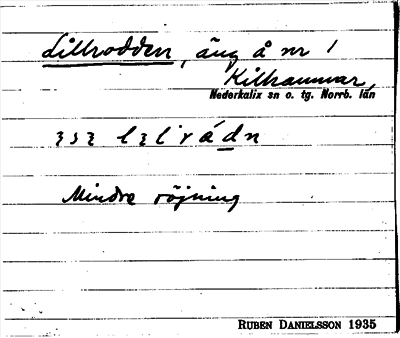 Lillrodden, äng å nr 1
Kilhammar,
Nederkalix sn o. tg. Norrb. län
Mindre röjning
RUBEN DANIELSSON 1935